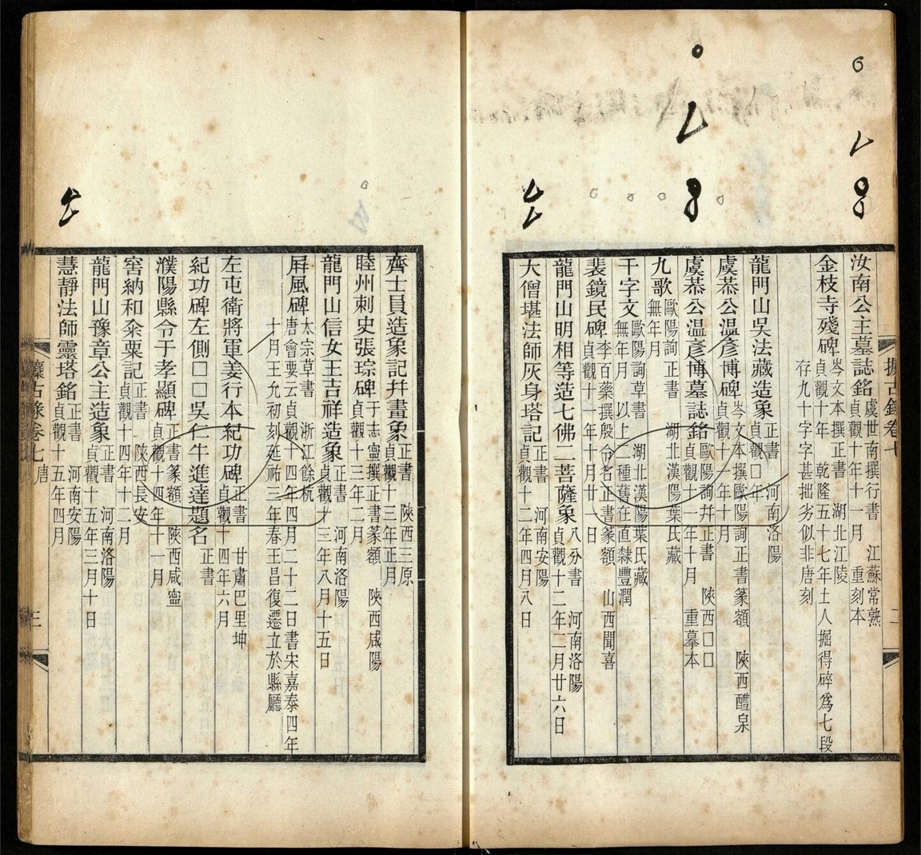 汝南公主墓誌銘 虞世南撰行書 江蘇常熟 貞觀十年十一月 重刻本
金枝寺殘碑 岑文本撰正書 湖北江陵 貞觀十年 乾隆五十七年土人掘得碎為七段
存九十字字甚拙劣似非唐刻
龍門山吳法藏造象 正書 河南洛陽 貞觀□年
虞恭公溫彥博碑 岑文本撰歐陽詢正書篆額 陝西醴泉 貞觀十一年十月
虞恭公溫彥博墓誌銘 歐陽詢撰幷正書 陝西□□ 貞觀十一年十月 重摹本
九歌 歐陽詢正書 湖北漢陽葉氏藏 無年月
千字文 歐陽詢草書 湖北漢陽葉氏藏 無年月 以上二種舊在直隸豐潤
裴鏡民碑 李百藥撰殷令名正書篆額 山西聞喜 貞觀十一年十月廿二日
龍門山明相等造七佛二菩薩象 八分書 河南洛陽 貞觀十二年二月廿六日
大僧堪法師灰身塔記 正書 河南安陽 貞觀十二年四月八日
齊士員造象記幷畫象 正書 陝西三原 貞觀十三年正月
睦州刺史張琮碑 于志寧撰正書篆額 陝西咸陽 貞觀十三年二月
龍門山信女王吉祥造象 正書 河南洛陽 貞觀十三年八月十五日
屛風碑 太宗草書 浙江餘杭 唐會要云貞觀十四年四月二十二日書宋嘉泰四年
十月王允初刻延祐三年春王昌復遷立於縣廳
左屯衛將軍姜行本紀功碑 正書 甘肅巴里坤 貞觀十四年六月
紀功碑左側□□吳仁牛進達題名 正書
濮陽縣令于孝顯碑 正書篆額 陝西咸寧 貞觀十四年十一月
窖納和糴粟記 正書 陝西長安 貞觀十四年十二月
龍門山豫章公主造象 正書 河南洛陽 貞觀十五年三月十日
慧靜法師靈塔銘 正書 河南安陽 貞觀十五年四月
攗古錄卷七 唐 三